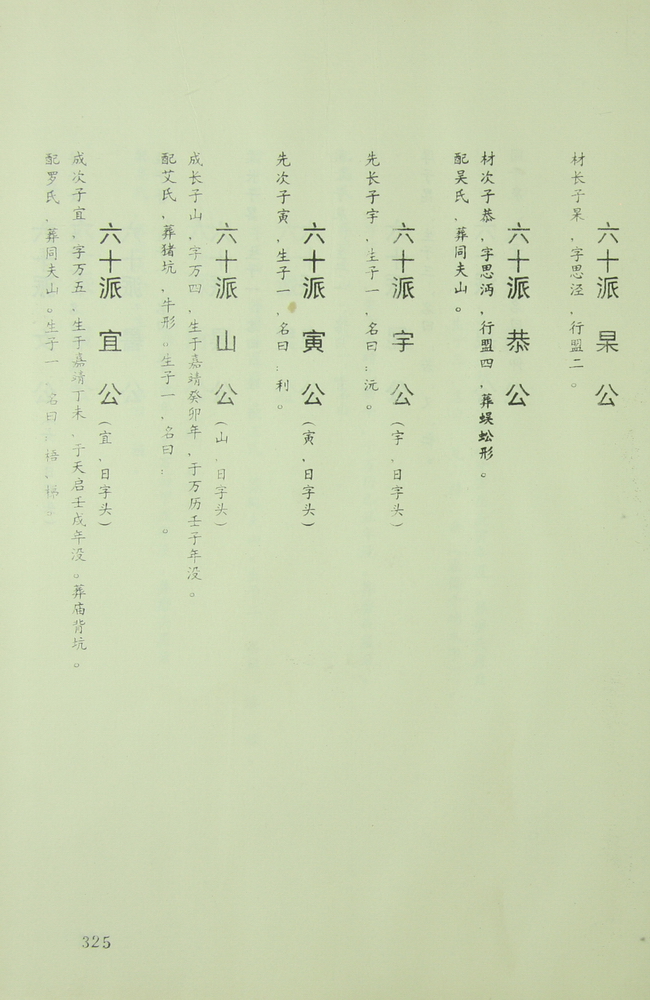 六十派 杲 公
材长子杲，字思泾，行盟二。
六十派 恭 公
材次子恭，字思沔，行盟四，葬蜈蚣形。
配吴氏、葬同夫山。
六十派 宇 公（宇、日字头）
先长子宇，生子一、名曰：沅。
六十派 寅 公（寅、日字头）
先次子寅，生子一、名曰：利。
六十派 山 公（山、日字头）
成长子山，字万四，生于嘉靖癸卯年，于万历壬子年没。
配艾氏、葬猪坑、牛形。生子一、名曰： 。
六十派 宜 公（宜、日字头）
成次子宜、字万五、生于嘉靖丁未、于天启壬戌年没。葬庙背坑。
配罗氏、葬同夫山。生子一、名曰：梧、梯。
325